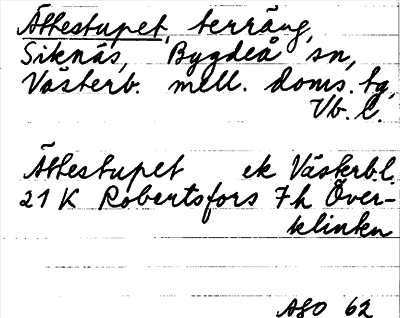 Ättestupet, terräng,
Siknäs, Bygdeå sn,
Västerb. mell. doms. tg,
Vb. l.
Ättestupet ek Västerb.l.
21 K Robertsfors 7h Över-
klinten
AGO 62